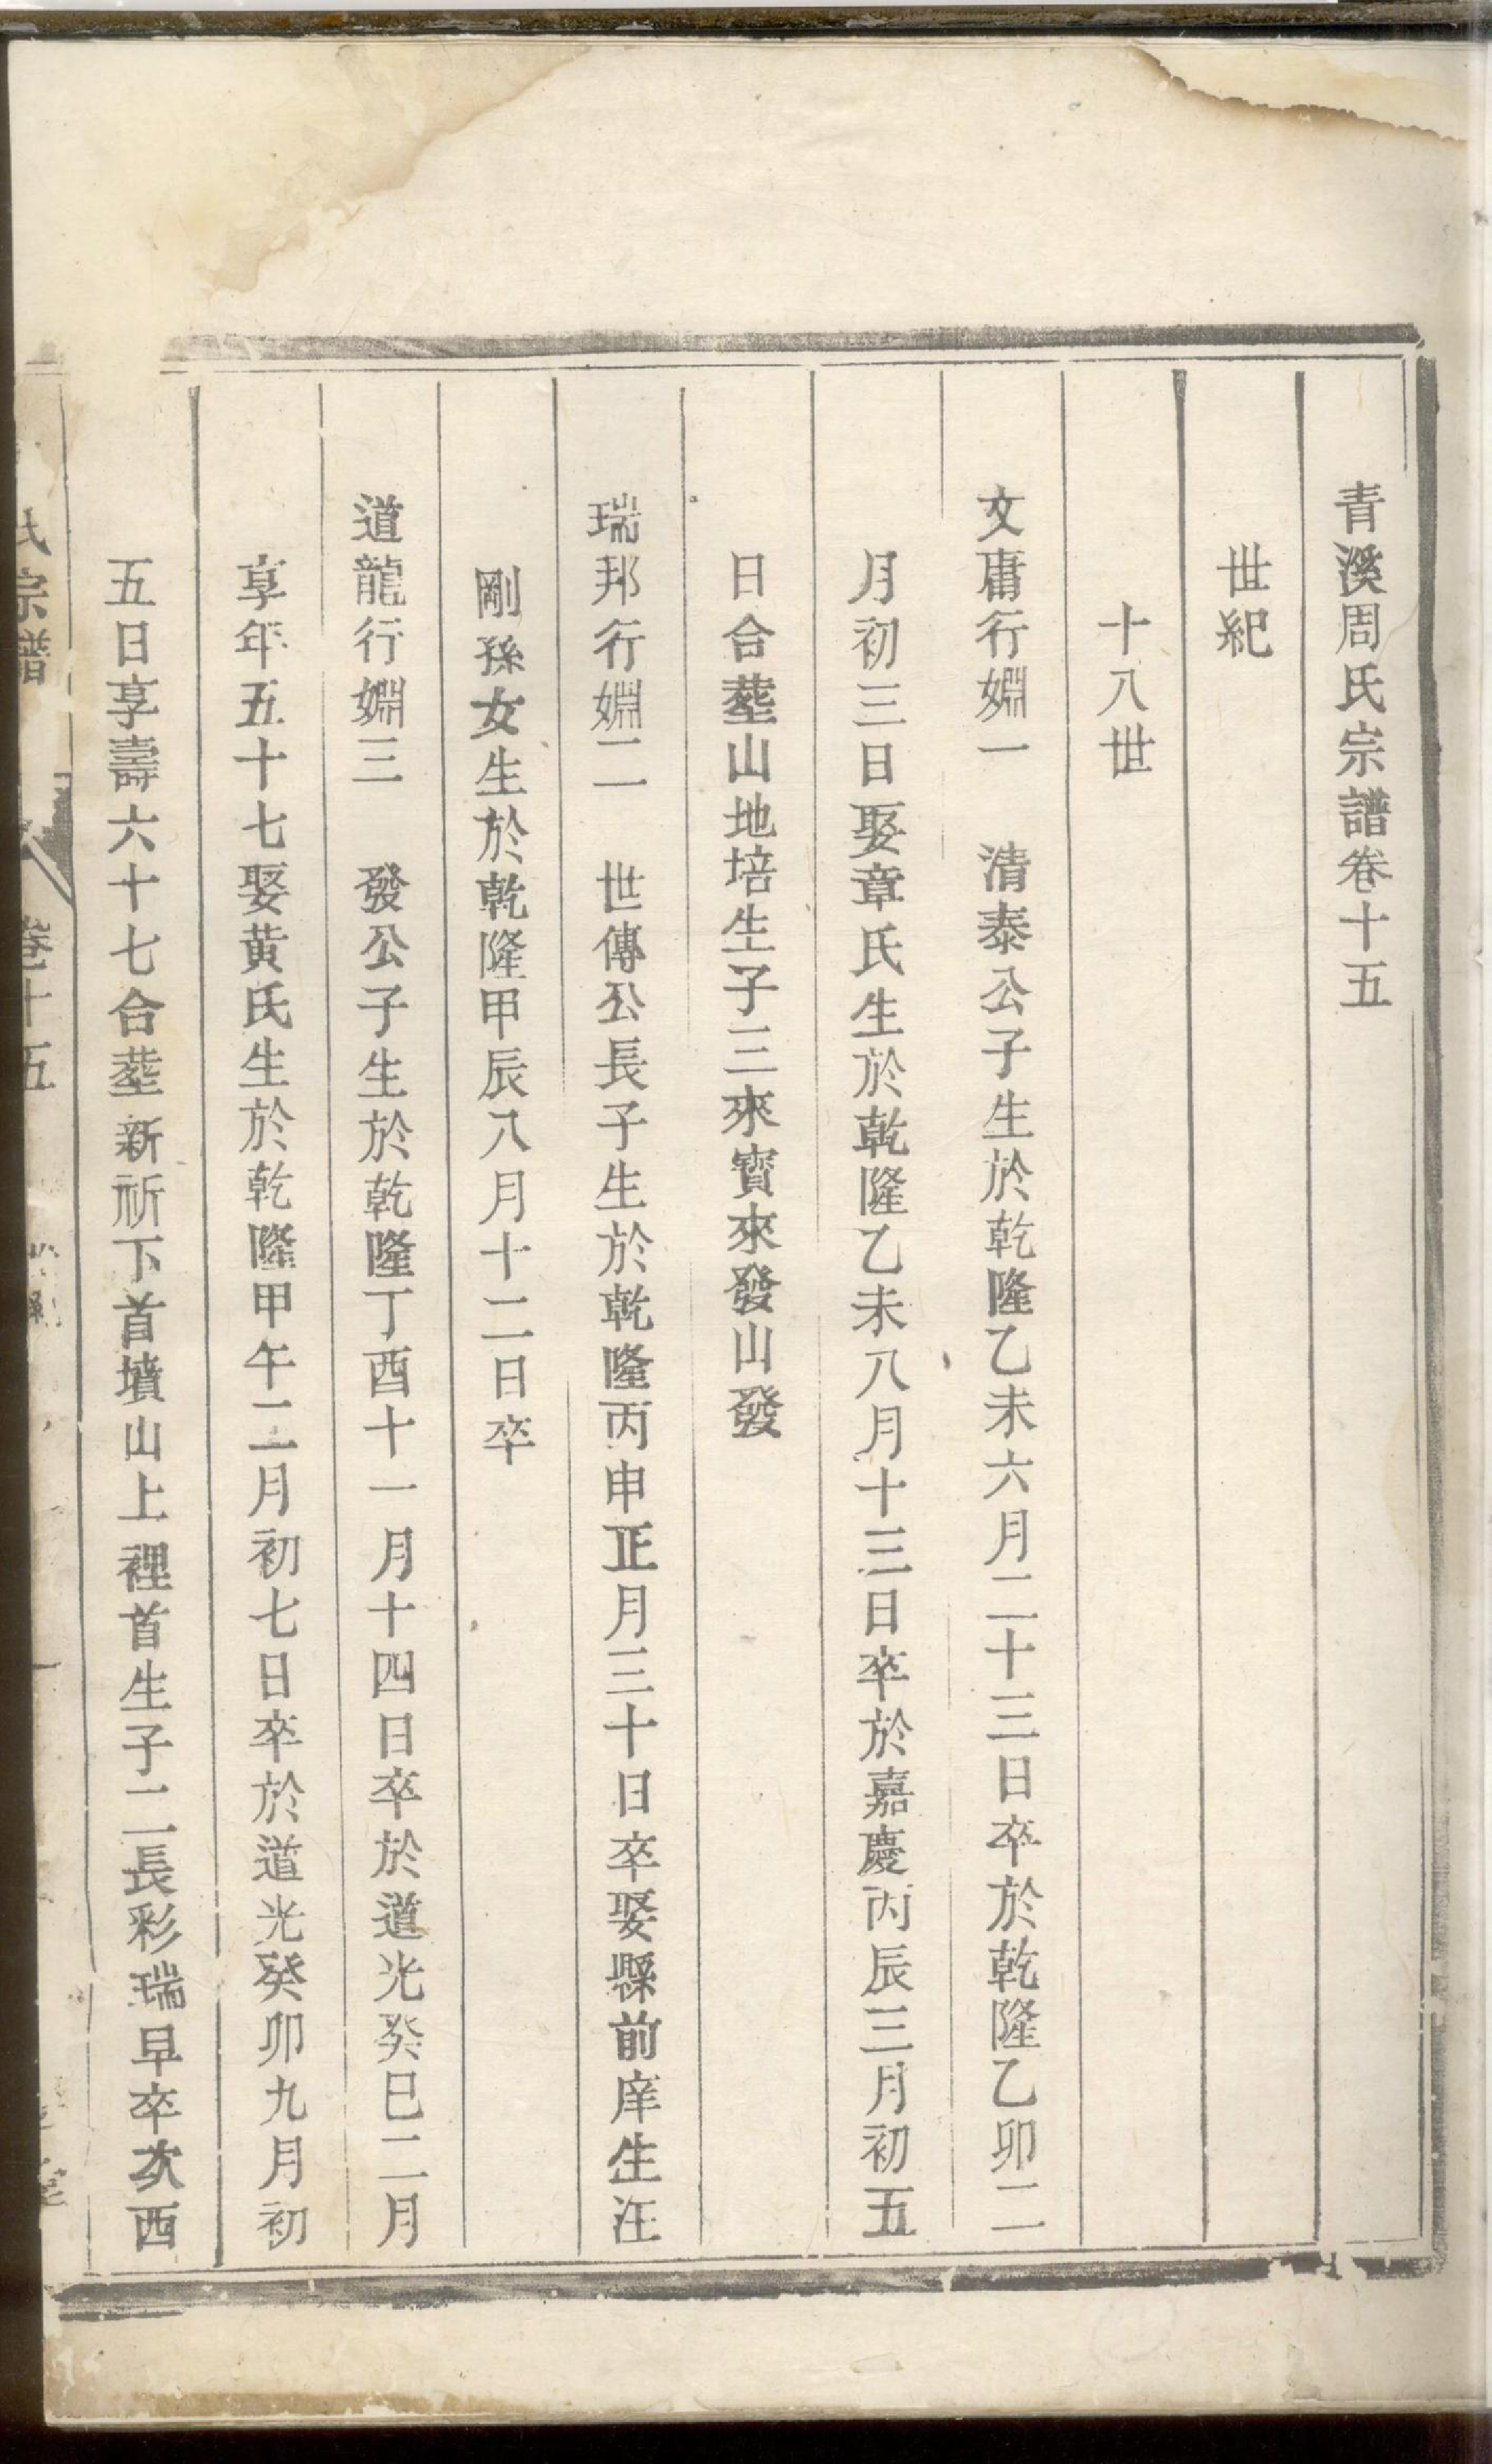 青溪周氏宗譜卷十五
世紀
十八世
文庸行婣一　清泰公子生於乾隆乙未六月二十三日卒於乾隆乙卯二
月初三日娶章氏生於乾隆乙未八月十三日卒於嘉慶丙辰三月初五
日合塟山地培生子三來寳來發山發
瑞邦行婣二　世傳公長子生於乾隆丙申正月三十日卒娶縣前庠生汪
剛孫女生於乾隆甲辰八月十二日卒
道龍行婣三　發公子生於乾隆丁酉十一月十四日卒於道光癸巳二月
享年五十七娶黄氏生於乾隆甲午二月初七日卒於道光癸卯九月初
五日享壽六十七合塟新祈下首墳山上裡首生子二長彩瑞早卒次西
氏宗譜　卷十五